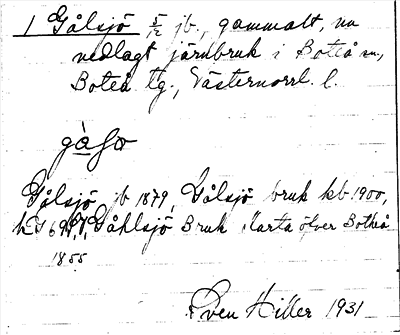 1 Gålsjö 5/2 jb., gammalt, nu
nedlagt järnbruk i Boteå sn.,
Boteå tg., Västernorrl. l.
Gålsjö jb 1879, Gålsjö bruk kb 1900,
Gåhlsjö Bruk Karta öfver Botheå
1855
Sven Hiller 1931